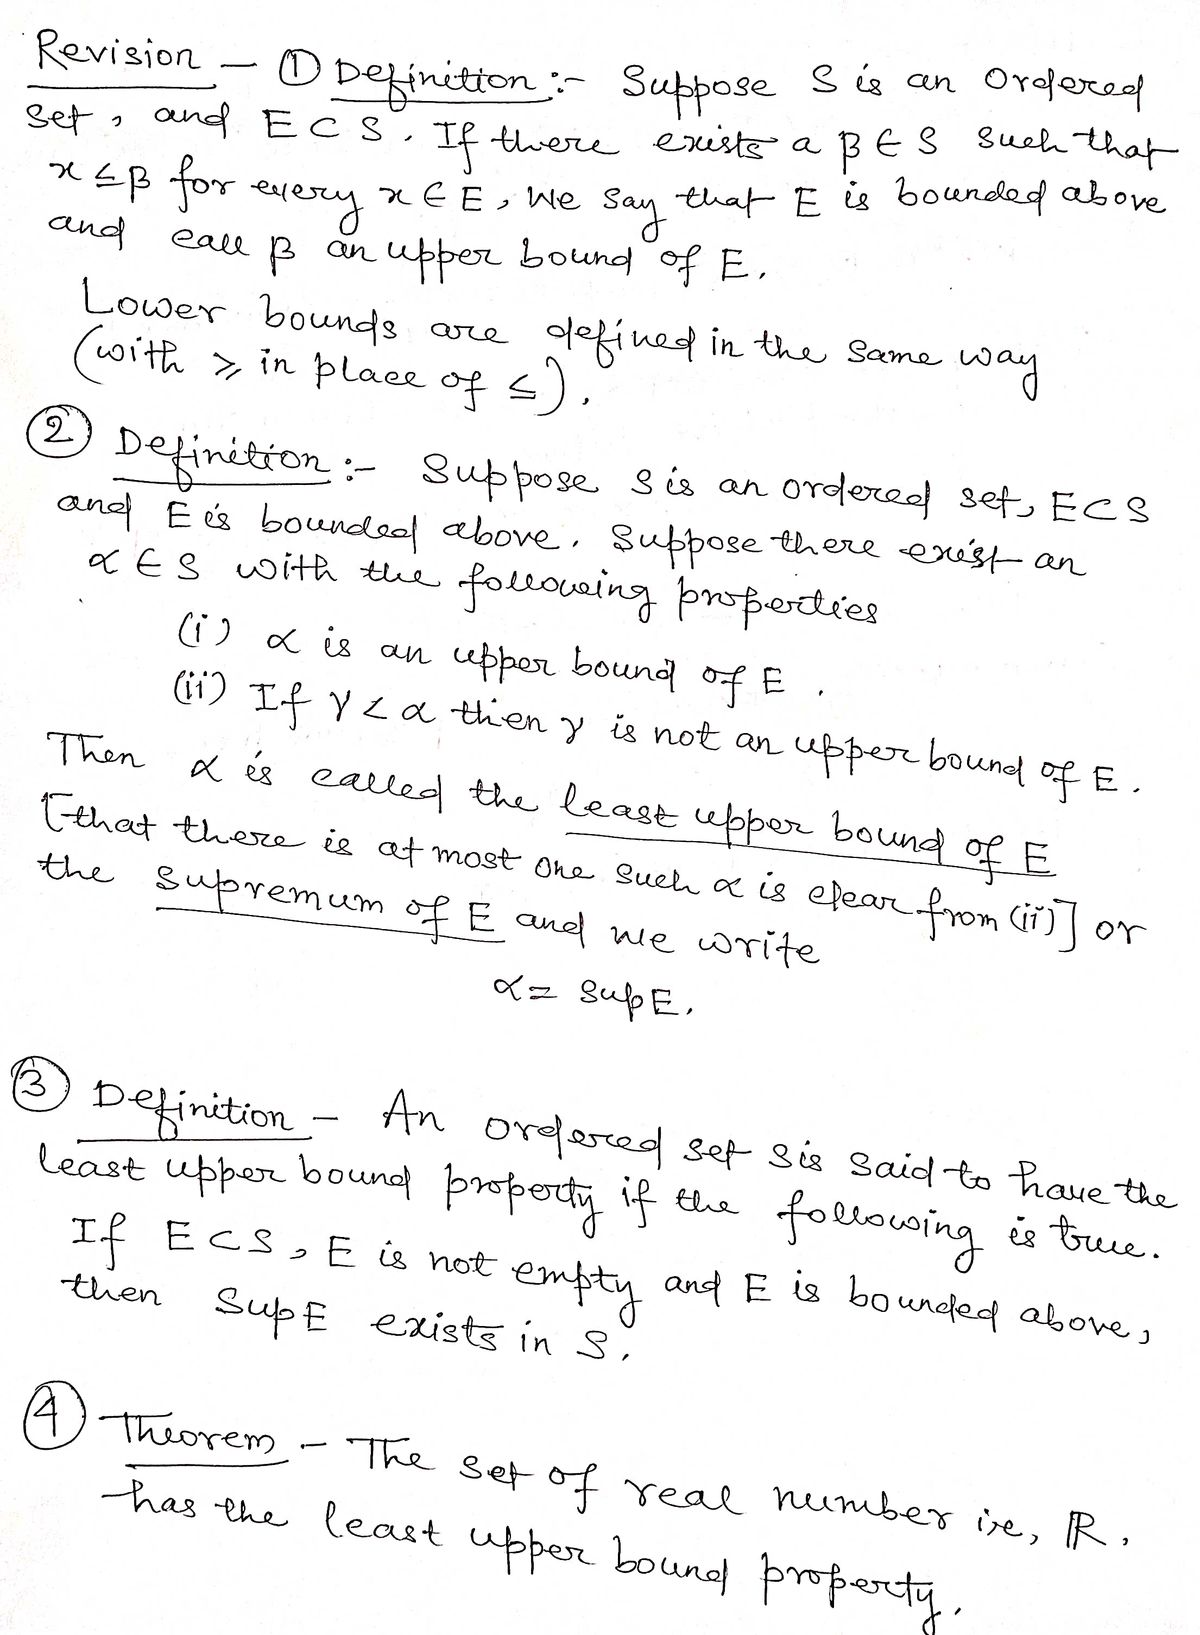 Revision – ① Definition :- Suppose S is an Ordered
set, and E ⊂ S. If there exists a β ∈ S such that
x ≤ β for every x ∈ E, we say that E is bounded above
and call β an upper bound of E.
Lower bounds are defined in the same way
(with ≥ in place of ≤).
② Definition :- Suppose S is an ordered set, E ⊂ S
and E is bounded above. Suppose there exist an
α ∈ S with the following properties
(i) α is an upper bound of E.
(ii) If γ < α then γ is not an upper bound of E.
Then α is called the least upper bound of E
[that there is at most one such α is clear from (ii)] or
the supremum of E and we write
α = Sup E.
③ Definition – An ordered set S is said to have the
least upper bound property if the following is true.
If E ⊂ S, E is not empty and E is bounded above,
then Sup E exists in S.
④ Theorem – The set of real number i.e, ℝ.
has the least upper bound property.